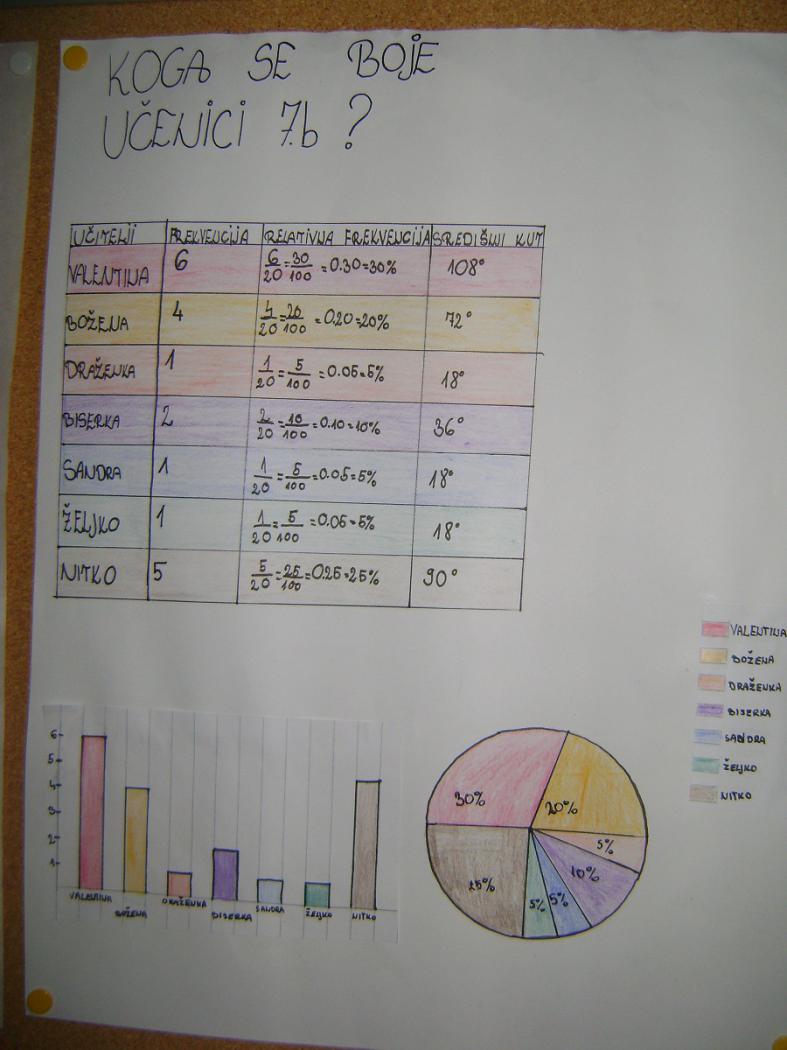 KOGA SE BOJE
UČENICI 7.b ?
UČITELJI FREKVENCIJA RELATIVNA FREKVENCIJA SREDIŠNJI KUT
VALENTINA 6 6/20=30/100=0.30=30% 108°
BOŽENA 4 4/20=20/100=0.20=20% 72°
DRAŽENKA 1 1/20=5/100=0.05=5% 18°
BISERKA 2 2/20=10/100=0.10=10% 36°
SANDRA 1 1/20=5/100=0.05=5% 18°
ŽELJKO 1 1/20=5/100=0.05=5% 18°
NITKO 5 5/20=25/100=0.25=25% 90°
VALENTINA
BOŽENA
DRAŽENKA
BISERKA
SANDRA
ŽELJKO
NITKO
6
5
4
3
2
1
VALENTINA BOŽENA DRAŽENKA BISERKA SANDRA ŽELJKO NITKO
30% 20%
5%
25% 5% 5% 10%